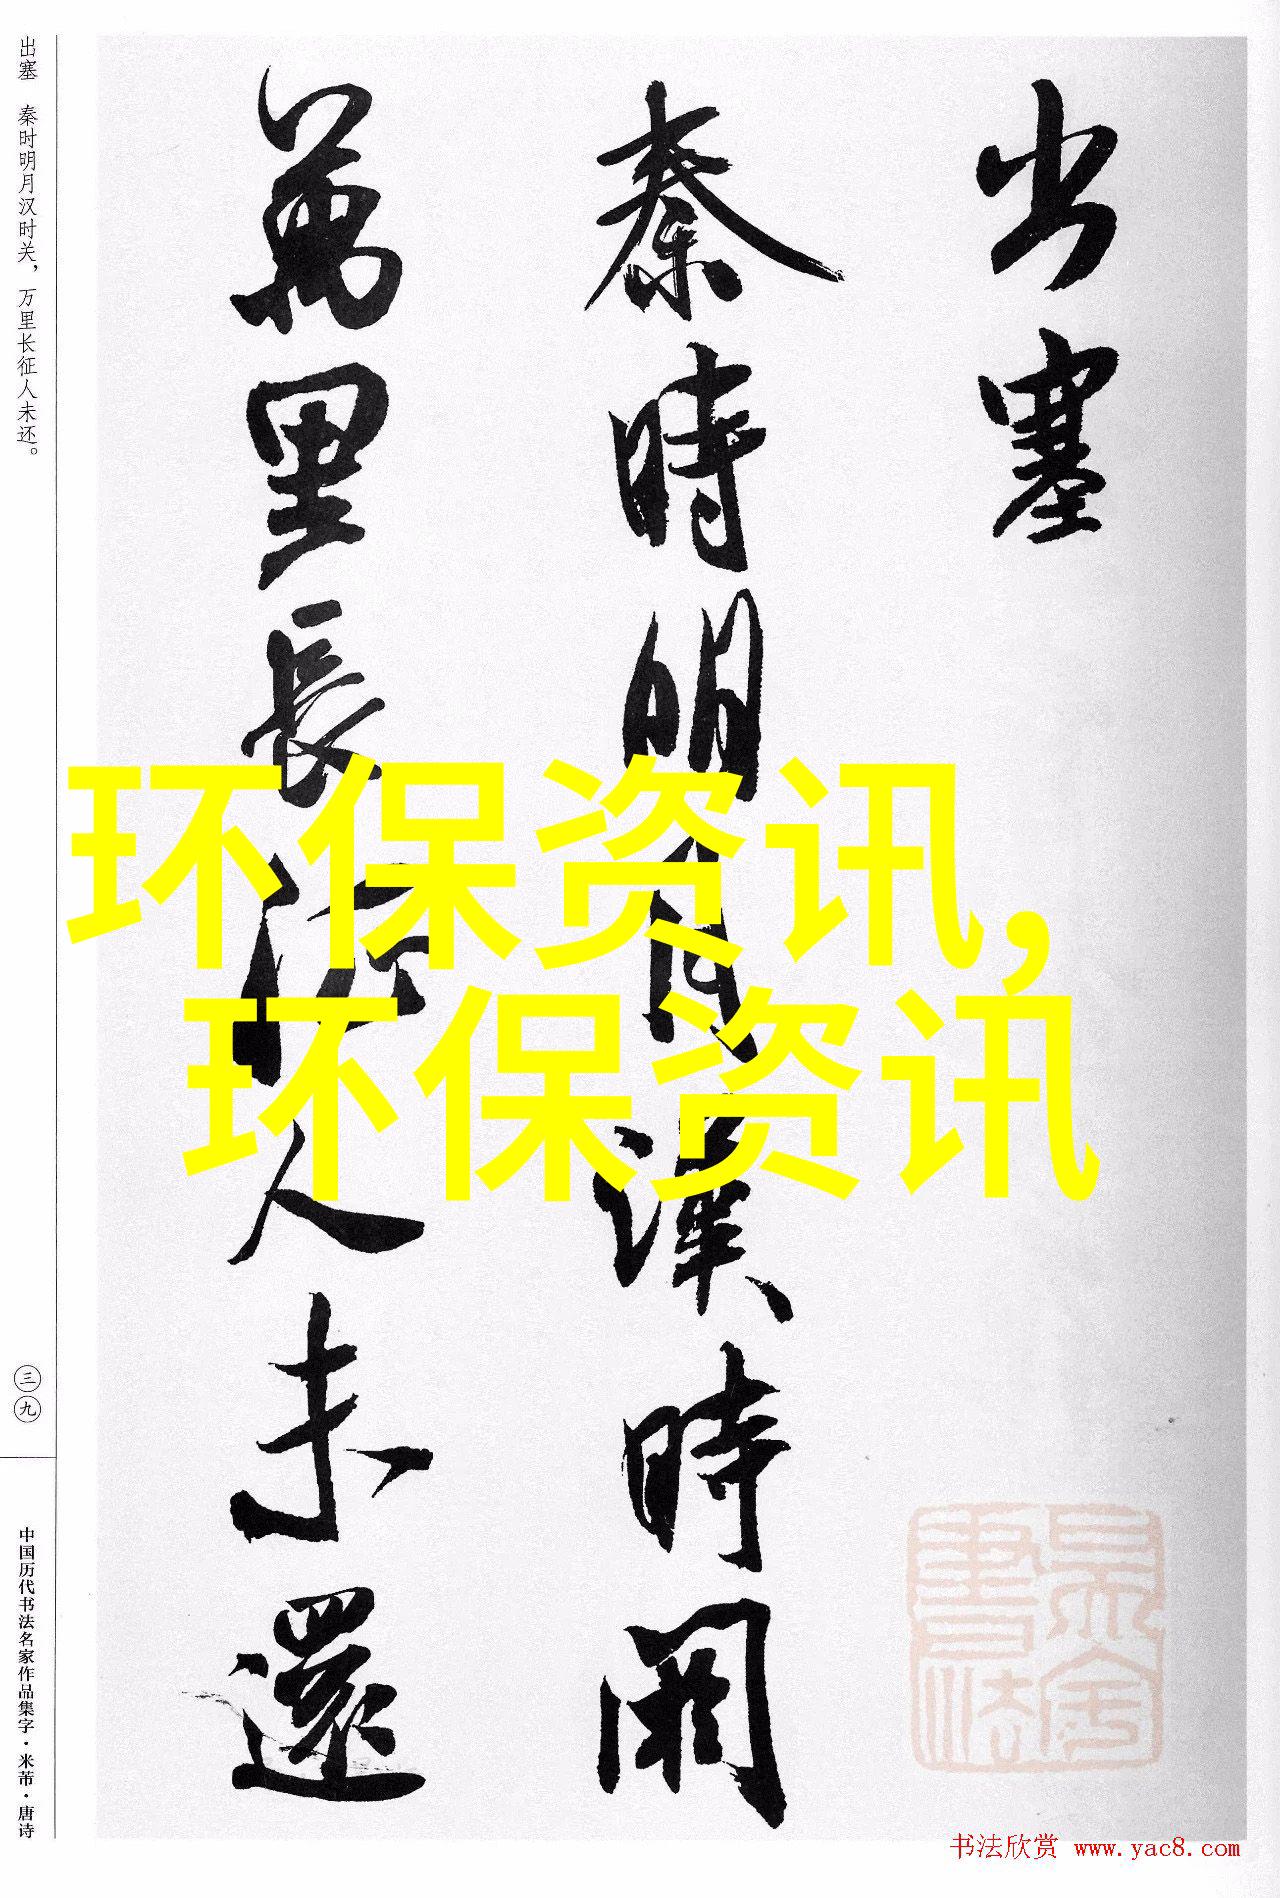 出塞
秦時明月漢時関
萬里長征人未還
环保资讯,
环保资讯
出塞 秦时明月汉时关，万里长征人未还。
三九
中国历代书法名家作品集字·米芾·唐诗
书法欣赏 www.yac8.com